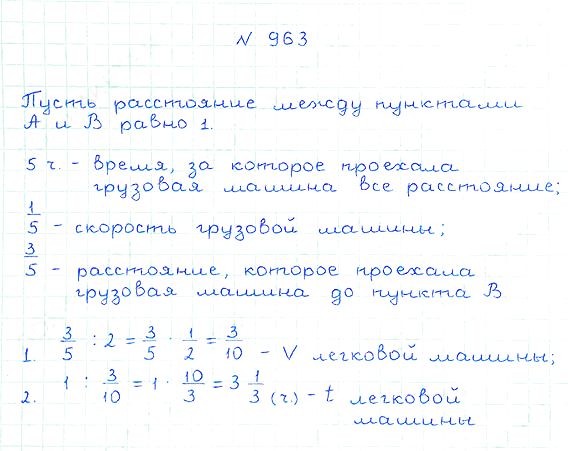 N 963
Пусть расстояние между пунктами
А и В равно 1.
5 ч. - время, за которое проехала
грузовая машина все расстояние;
1/5 - скорость грузовой машины;
3/5 - расстояние, которое проехала
грузовая машина до пункта В
1. 3/5 : 2 = 3/5 · 1/2 = 3/10 - V легковой машины;
2. 1 : 3/10 = 1 · 10/3 = 3 1/3 (ч.) - t легковой
машины